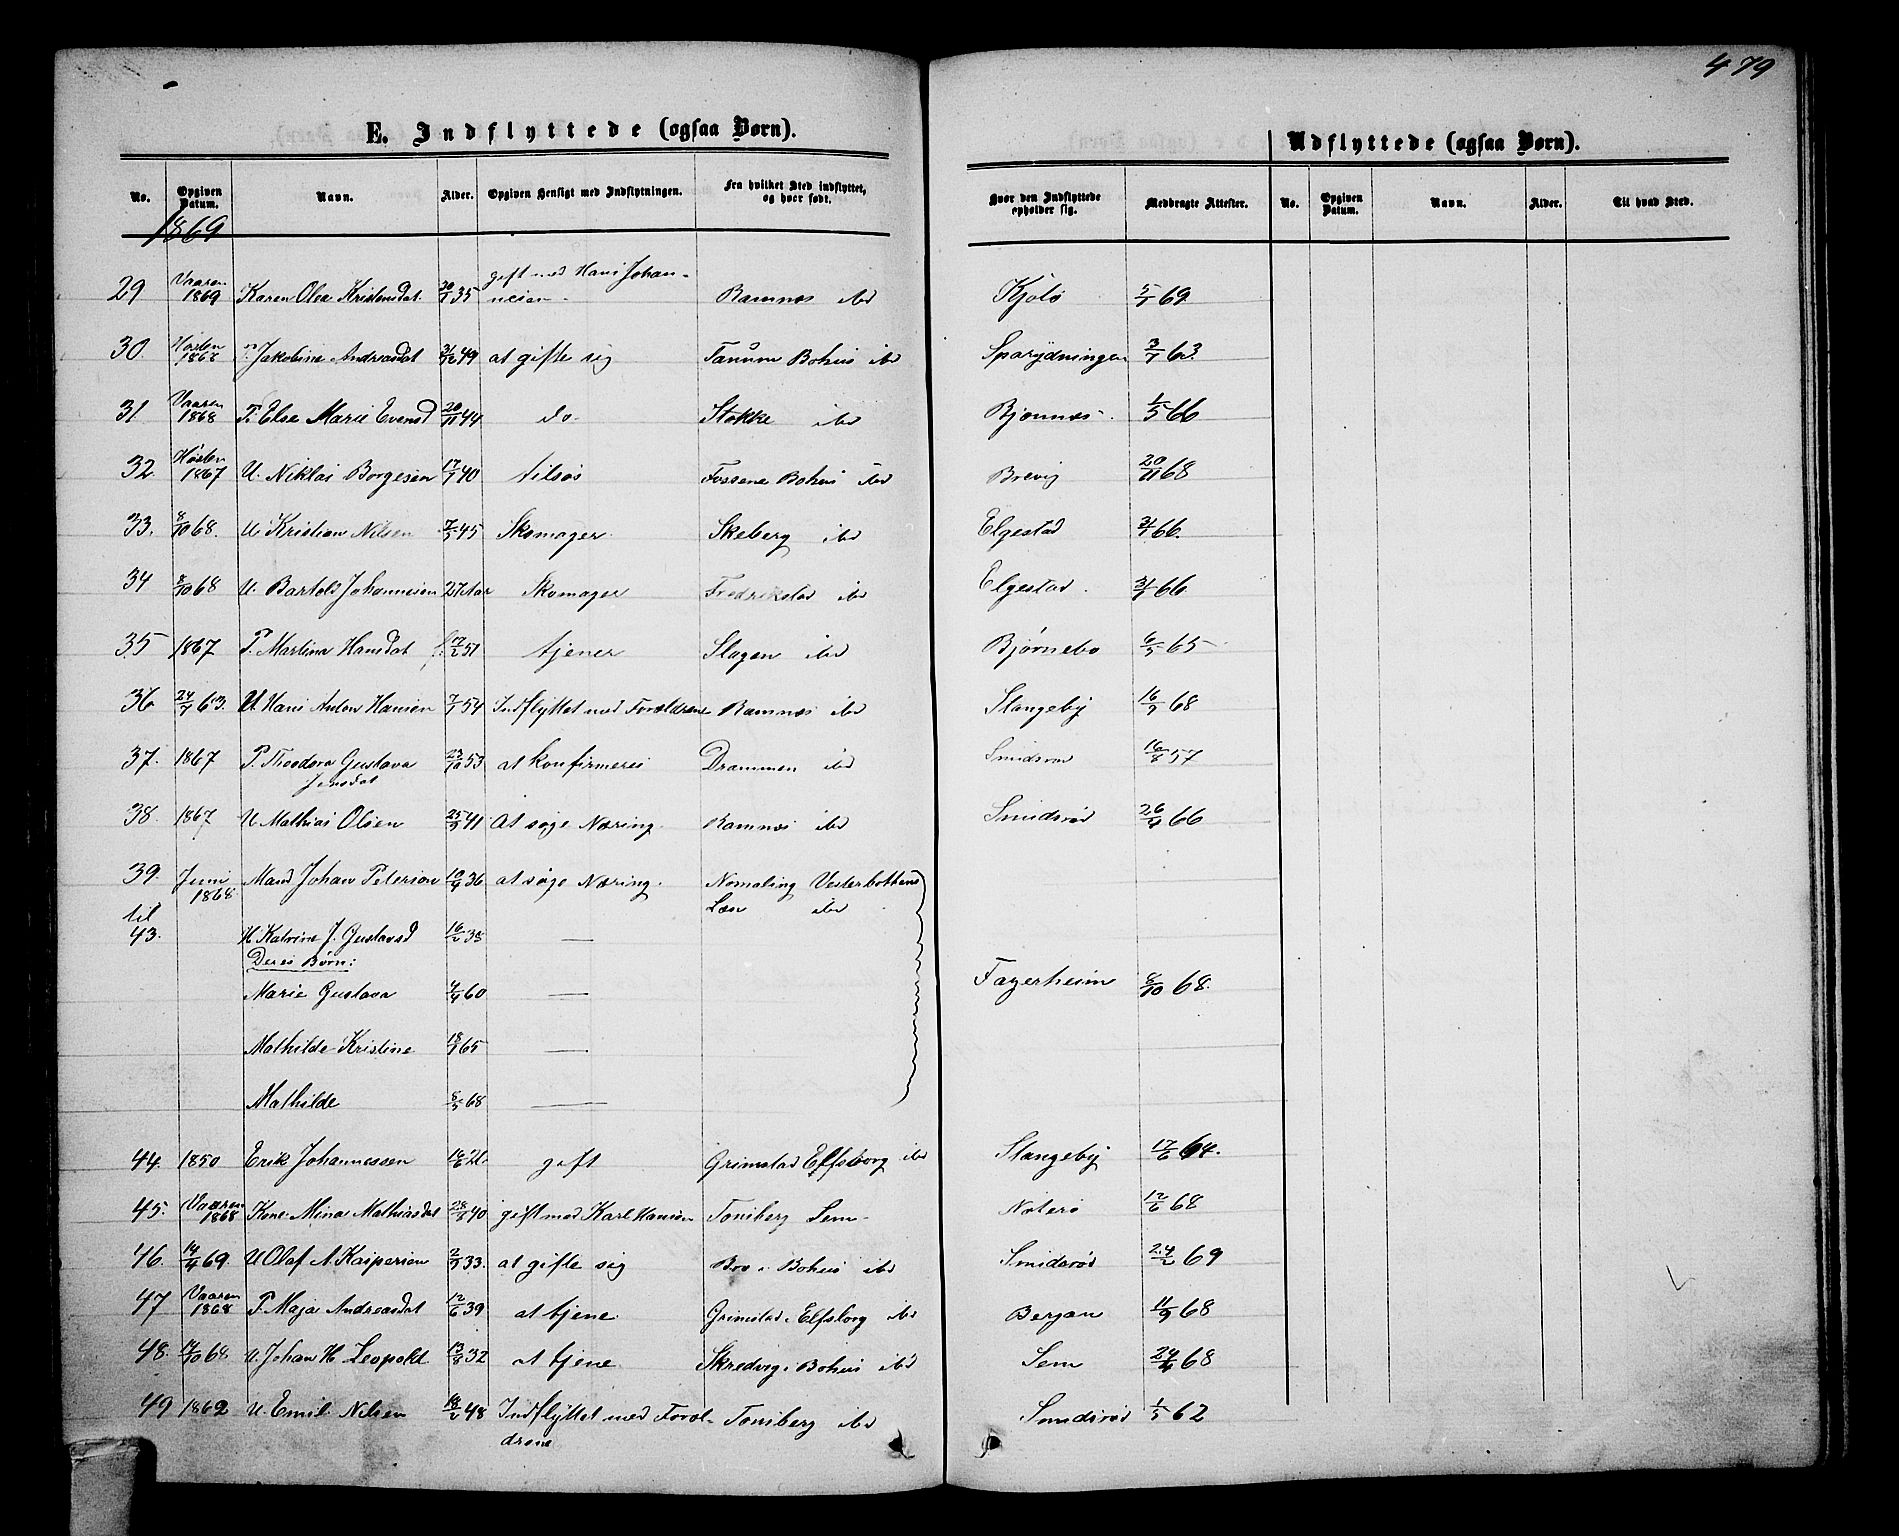 479
E. Indflyttede (ogsaa Børn).
Udflyttede (ogsaa Børn).
No. Opgiven Datum. Navn. Alder. Opgiven Hensigt med Indflytningen. Fra hvilket Sted indflyttet, og hvor født. Hvor den Indflyttede opholder sig. Medbragte Attester. No. Opgiven Datum. Navn. Alder. Til hvad Sted.
1869
29 Vaaren 1869 Karen Olea Kristensdat. 35 gift med Hans Johannesen Ramnes ibd Kjølø 5/7 69
30. Høsten 1868 P. Jakobine Andreasdat 49 at gifte sig Tanum Bohus ibd 3/7 63.
31 Vaaren 1868 P. Else Marie Evensd 20/11 44 do Stokke ibd Bjønnes 1/5 66
32 Høsten 1867 U. Niklas Borgesen 17/7 40 tilsøs Fossene Bohus ibd Brevig 20/11 68
33. 8/10 68. U. Kristian Nilsen 7/5 45 Skomager Skeberg ibd Elgestad 66.
34 8/10 68 U. Bartold Johannesen 27 Aar Skomager Fredrikstad ibd Elgestad 66
35 1867 P. Martina Hansdat 17/2 51 tjener Slagen ibd Bjørnebo 6/5 65
36 24/7 63. U. Hans Anton Hansen 7/7 54 Indflyttet med Forældrene Ramnes ibd Slangeby 16/7 68
37. 1867 P. Theodora Gustava Jensdat 23/10 53 at konfirmeres Drammen ibd Smidsrød 57
38. 1867 U Mathias Olsen 25/5 41 at søge Næring. Ramnes ibd Smidsrød 26/4 66
39. til 43. Juni 1868 Mand Johan Peterson 10/9 36 at søge Næring. Nomaling Vesterbottens Læn ibd
H Katrine J. Gustavsd 16/2 35 —
Deres Børn:
Marie Gustava 4/4 60 — Fagerheim 8/10 68.
Mathilde Kristine 65 —
Mathilde 8/5 68 —
44. 1850 Erik Johannessen gift Grimstad Elfsborg ibd Slangeby 17/6 64.
45. Vaaren 1868 Kone Mina Mathiasdat 28/8 40 gift med Karl Hansen Tonsberg Sem Nøterø 12/6 68
46. 14/4 69. U Olaf A. Kaspersen 33. at gifte sig Bro i Bohus ibd Smidsrød 24/2 69
47 Vaaren 1868 P. Maja Andreasdat 12/6 39 at tjene. Grimstad i Elfsborg ibd Berjan 11/9 68
48. 14/10 68 U. Johan H Leopold 13/8 32 at tjene Skredvig i Bohus ibd Sem 68
49 1862 U. Emil Nilsen 18/2 48 Indflyttet med Forældrene Tonsberg ibd Smidsrød 1/5 62